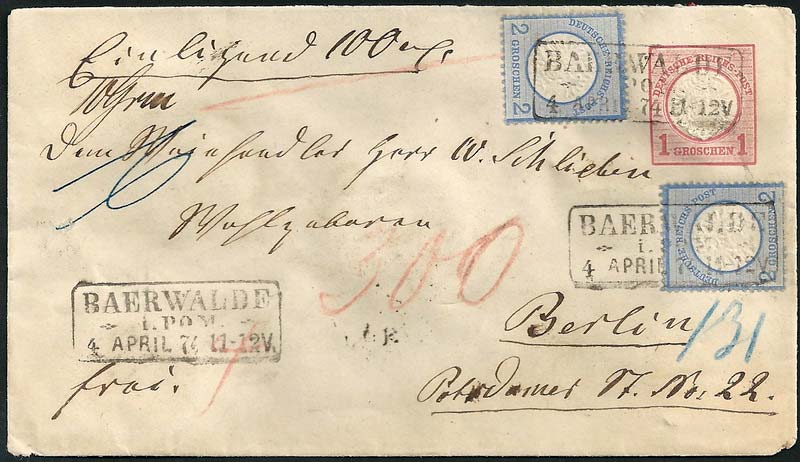 Einliegend 100 rℓ.
Dem Weinhendler Herr W. Schlieben
Wohlgeboren
300
Berlin
Potsdamer St. No. 22.
frei.
131
BAERWALDE
i. POM.
4 APRIL 74 11-12V.
BAERWA
4 74 11-12V
BAER
4 APRIL 11-12V
2 GROSCHEN 2
DEUTSCHE REICHS-POST
DEUTSCHE REICHS-POST
1 GROSCHEN 1
DEUTSCHE REICHS-POST
2 GROSCHEN 2